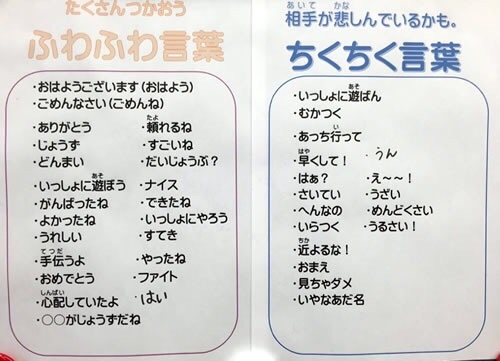 たくさんつかおう
ふわふわ言葉
・おはようございます(おはよう)
・ごめんなさい(ごめんね)
・ありがとう ・頼れるね
・じょうず ・すごいね
・どんまい ・だいじょうぶ?
・いっしょに遊ぼう ・ナイス
・がんばったね ・できたね
・よかったね ・いっしょにやろう
・うれしい ・すてき
・手伝うよ ・やったね
・おめでとう ・ファイト
・心配していたよ ・はい
・〇〇がじょうずだね
相手が悲しんでいるかも。
ちくちく言葉
・いっしょに遊ばん
・むかつく
・あっち行って
・早くして! ・うん
・はぁ? ・え〜〜!
・さいてい ・うざい
・へんなの ・めんどくさい
・いらつく ・うるさい!
・近よるな!
・おまえ
・見ちゃダメ
・いやなあだ名